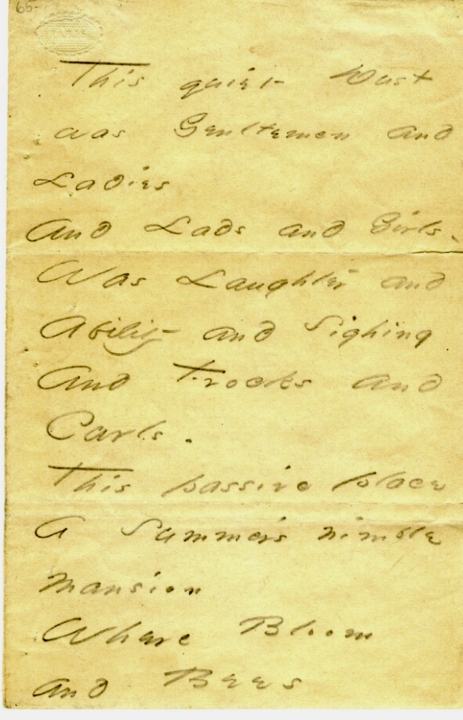 65-
This quiet Dust
was Gentlemen and
Ladies
And Lads and Girls.
Was Laughter and
Ability and Sighing
And Frocks and
Curls.
This passive place
A Summer's nimble
mansion
Where Bloom
and Bees